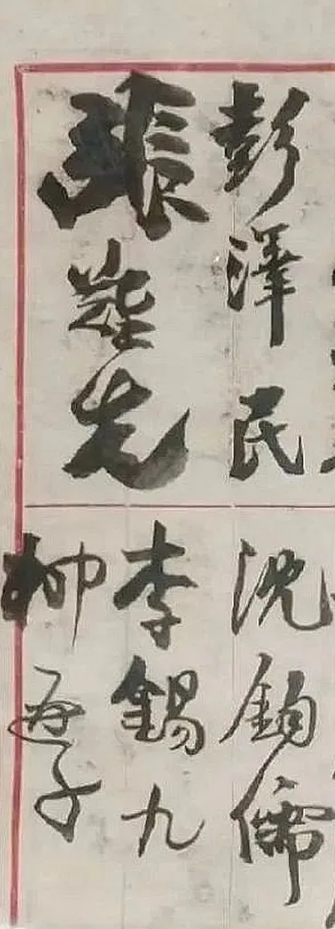 彭泽民
張難先
沈鈞儒
李錫九
柳亞子